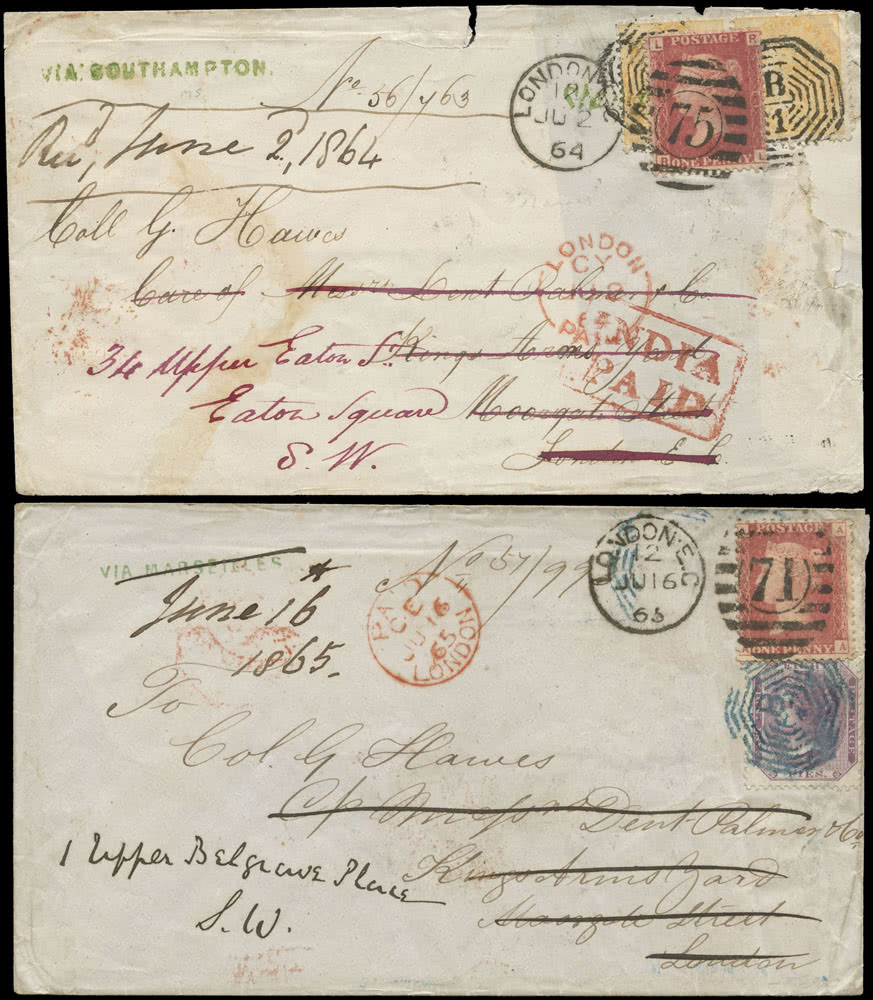 VIA SOUTHAMPTON.
No 56/763
Recd, June 2d, 1864
Coll G. Hawes
Care of Messrs Dent Palmer & Co.
34 Upper Eaton St. Kings Arms Yard
Eaton Square Moorgate Street
S.W. London E C
LONDON
12
JU 2
64
L R
POSTAGE
75
ONE PENNY L
B
1
LONDON
CY
PAID
INDIA
PAID
VIA MARSEILLES
No 57/99
June 16th
1865.
To
Col. G Hawes
C/o Messrs Dent Palmer & Co
Kings Arms Yard
1 Upper Belgrave Place
Moorgate Street
S.W. London
PAID
C.E
JU 16
65
LONDON
LONDON.E.C
12
JU 16
65
A POSTAGE A
71
A ONE PENNY A
B
PIES.